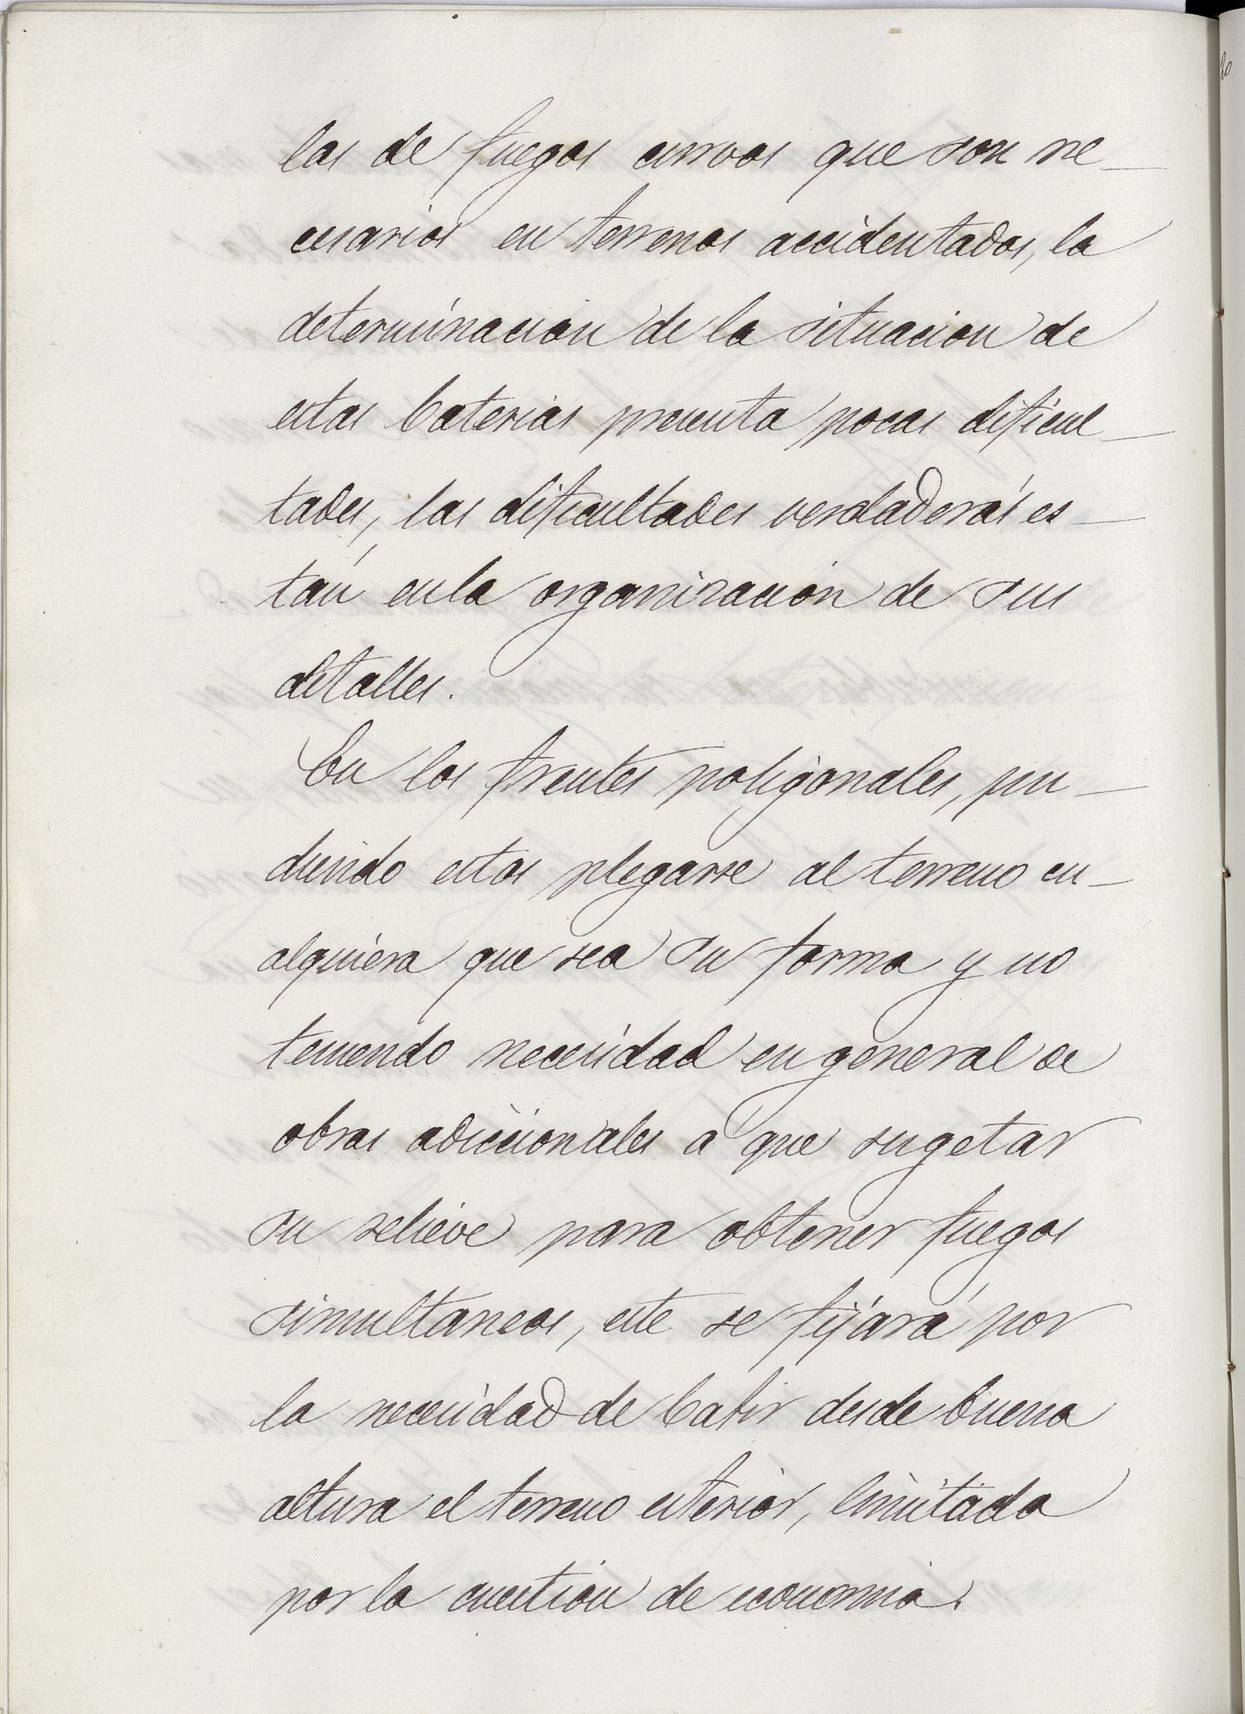 las de fuegos curvos que son ne_
cesarios en terrenos accidentados, la
determinacion de la situacion de
estas baterias presenta pocas dificul_
tades, las dificultades verdaderas es_
tán en la organizacion de sus
detalles.
En los frentes poligonales, pu_
diendo estos plegarse al terreno cu_
alquiera que sea su forma y no
teniendo necesidad en general de
obras adiccionales a que sugetar
su relieve para obtener fuegos
simultaneos, este se fijará por
la necesidad de batir desde buena
altura el terreno exterior, limitada
por la cuestion de economia.